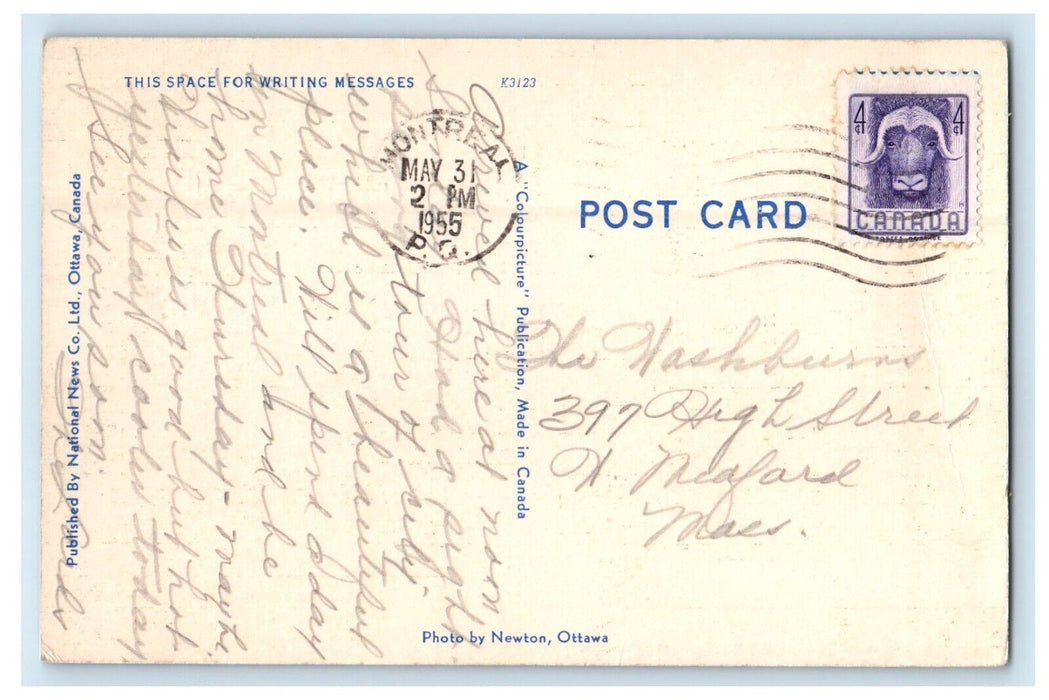 THIS SPACE FOR WRITING MESSAGES
K3123
Arrived here at noon
Had a
tour of city
which is a beautiful
place. Will spend today
in Montreal and be
home Thursday - maybe.
is good but hot
yesterday cooler today
See you soon.
Published By National News Co. Ltd., Ottawa, Canada
A "Colourpicture" Publication, Made in Canada
Photo by Newton, Ottawa
MONTREAL
MAY 31
2 PM
1955
P.Q.
POST CARD
4¢ 4¢
CANADA
The Washburns
397 High Street
W. Medford
Mass.